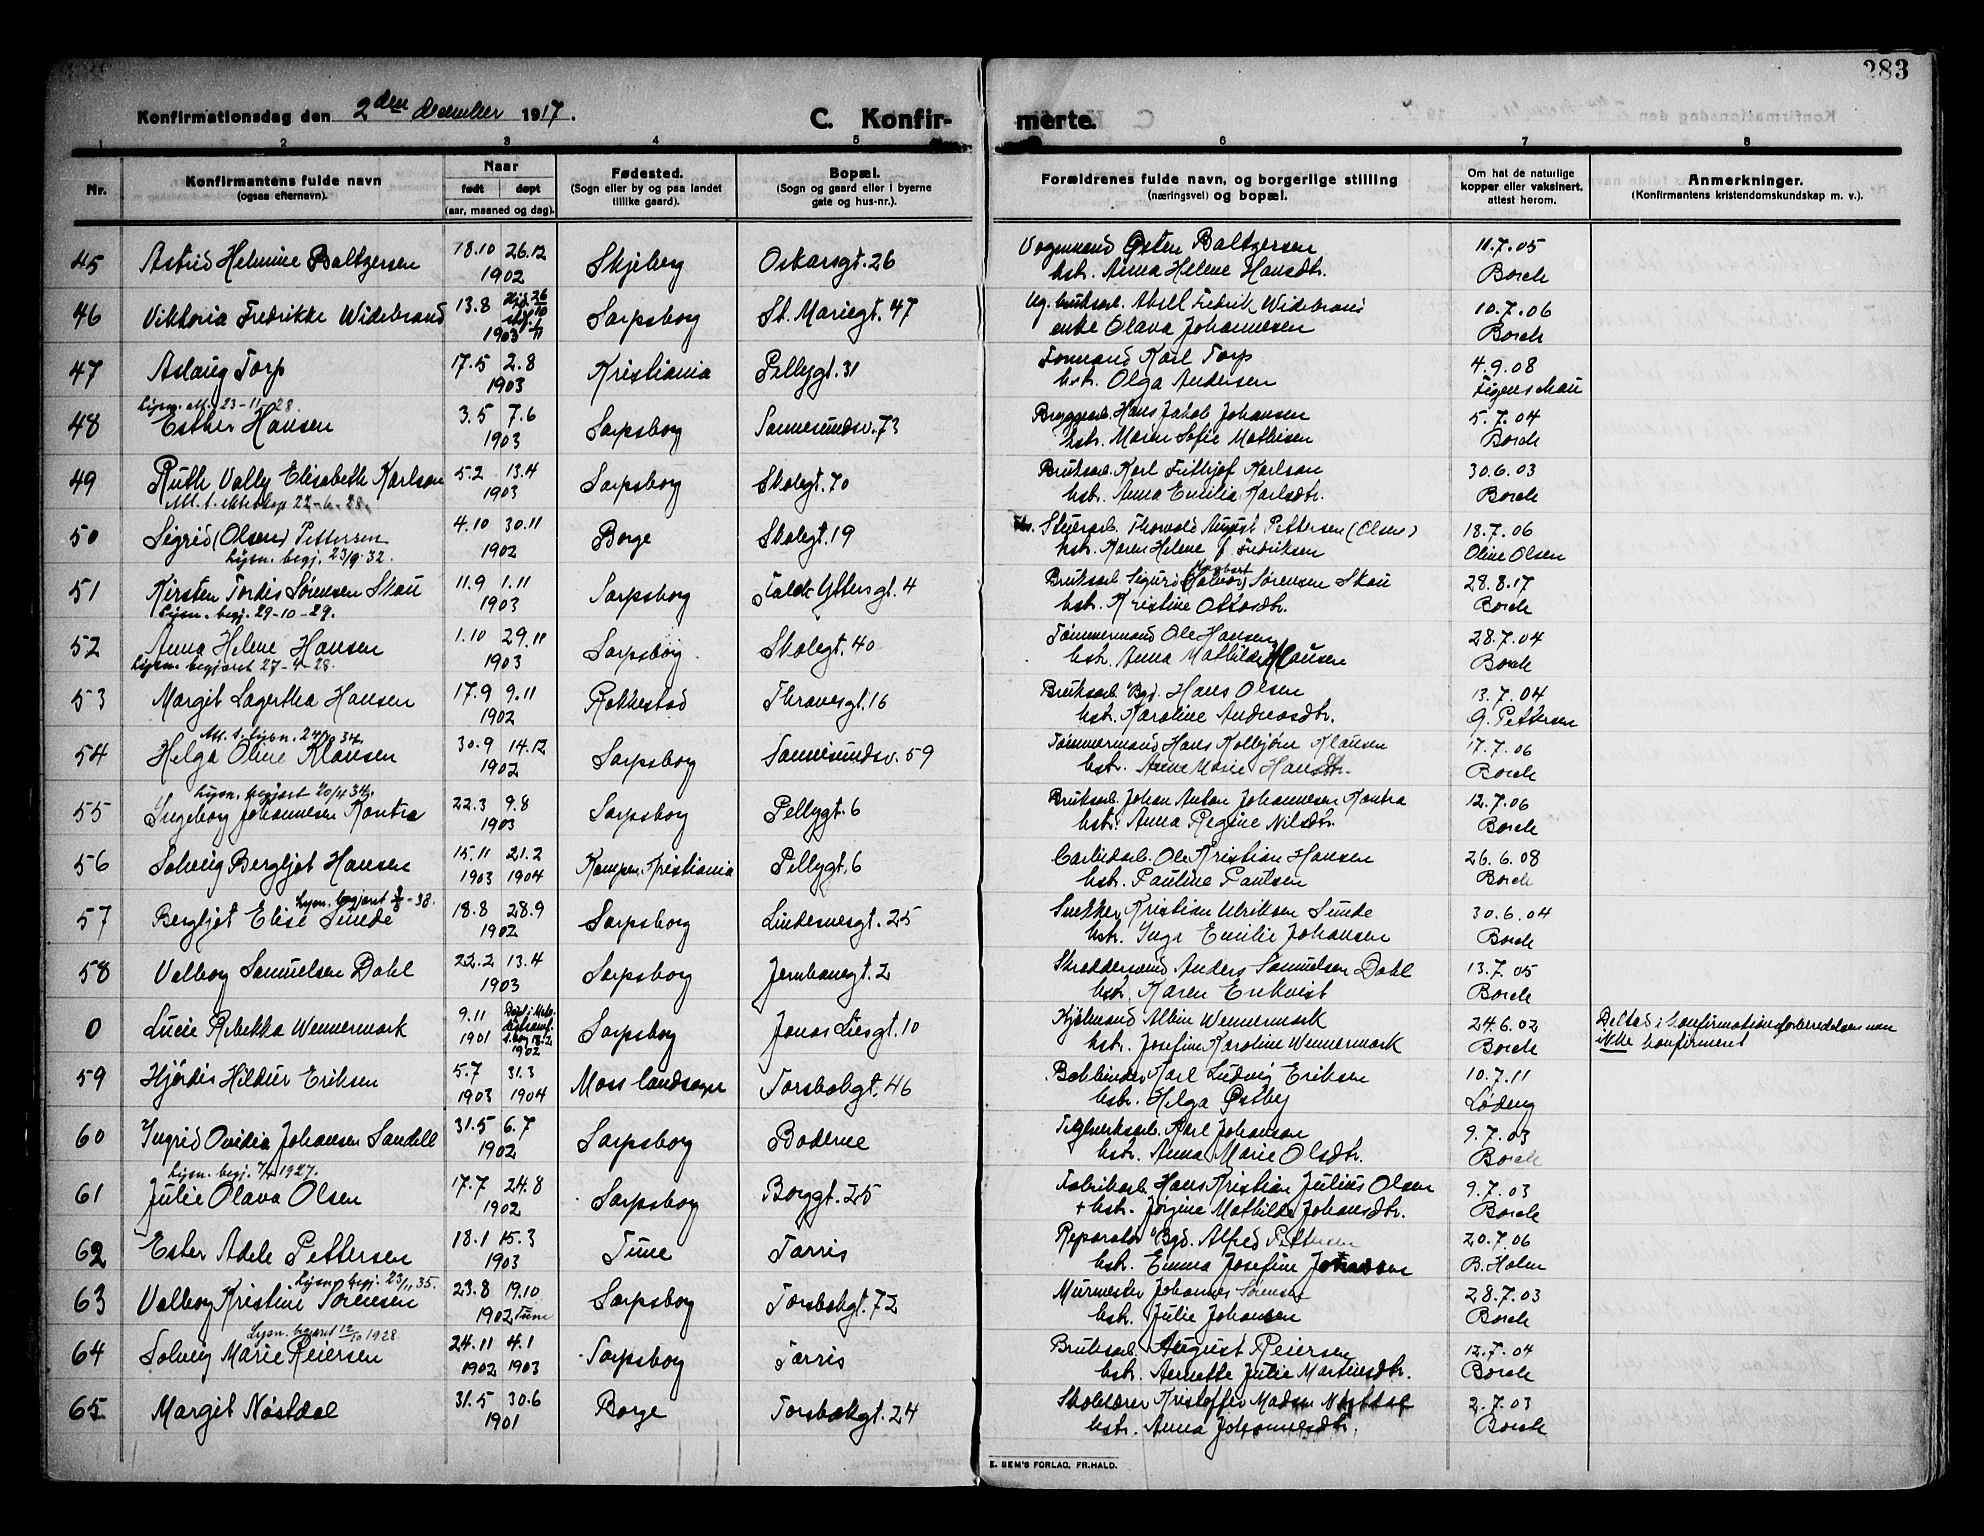 283
Konfirmationsdag den 2den December 1917.
C. Konfirmerte.
1 2 3 4 5 6 7 8
Nr.
Konfirmantens fulde navn
(ogsaa efternavn).
Naar
født døpt
(aar, maaned og dag).
Fødested.
(Sogn eller by og paa landet
tillike gaard).
Bopæl.
(Sogn og gaard eller i byerne
gate og hus-nr.).
Forældrenes fulde navn, og borgerlige stilling
(næringsvei) og bopæl.
Om hat de naturlige
kopper eller vaksinert,
attest herom.
Anmerkninger.
(Konfirmantens kristendomskundskap m. v.).
45 Astrid Helmine Baltzersen 18.10 26.12 Skjeberg Oskarsgt. 26 Vognmand Østen Baltzersen 11.7.05
1902 hstr. Anna Helene Hansdtr. Borch
46 Viktoria Fredrikke Widebrand 13.8 Sarpsborg St. Mariegt. 47 Fredrik Widebrand 10.7.06
1903 enke Olava Johannesen Borch
47 Aslaug Torp 17.5 2.8 Kristiania Pellygt. 31 Formand Karl Torp 4.9.08
1903 hstr. Olga Andersen Figenschau
Lysn. att. 23-11-28.
48 Esther Hansen 3.5 7.6 Sarpsborg Sannesundsv. 73 Bryggearb. Hans Jakob Johansen 5.7.04
1903 hstr. Maren Sofie Mathisen Borch
49 Ruth Vally Elisabeth Karlson 5.2 13.4 Sarpsborg Skolegt. 70 Bruksarb. Karl Frithjof Karlson 30.6.03
Att. t. ekteskap 22-6-28. 1903 hstr. Anna Emilia Karlsdtr. Borch
50 Sigrid (Olsen) Pettersen 4.10 30.11 Borge Skolegt. 19 Thorvald August Pettersen (Olsen) 18.7.06
Lysn. begj. 23/9 32. 1902 hstr. Karen Helene F. Fredriksen Oline Olsen
51 Kirsten Tordis Sørensen Skau 11.9 1.11 Sarpsborg Falck Yttersgt. 4 Bruksarb. Sigurd Sørensen Skau 28.8.17
Lysn. begj. 29-10-29. 1903 hstr. Kristine Ottosdtr. Borch
52 Anna Helene Hansen 1.10 29.11 Sarpsborg Skolegt. 40 Tømmermand Ole Hansen 28.7.04
Lysn. begjæret 27-4-28. 1903 hstr. Anna Mathilde Hansen Borch
53 Margit Lagertha Hansen 17.9 9.11 Rakkestad Thranesgt. 16 Bruksarb. Hans Olsen 13.7.04
1902 hstr. Karoline Andreasdtr. G. Pettersen
Att. t. lysn. 24/10 34.
54 Helga Oline Klausen 30.9 14.12 Sarpsborg Sannesundsv. 59 Tømmermand Hans Kolbjørn Klausen 17.7.06
1902 hstr. Anna Marie Hansdtr. Borch
Lysn. begjært 20/4 34.
55 Ingeborg Johannesen Kontra 22.3 9.8 Sarpsborg Pellygt. 6 Bruksarb. Johan Anton Johannesen Kontra 12.7.06
1903 hstr. Anna Regine Nilsdtr. Borch
56 Solveig Bergljot Hansen 15.11 21.2 Kampen, Kristiania Pellygt. 6 Carbidarb. Ole Kristian Hansen 26.6.08
1903 1904 hstr. Pauline Paulsen Borch
Lysn. begjæret
57 Bergljot Elise Sunde 18.8 28.9 Sarpsborg Lindesnesgt. 25 Snekker Kristian Ulriksen Sunde 30.6.04
1902 hstr. Inga Emilie Johansen Borch
58 Valborg Samuelsen Dahl 22.2 13.4 Sarpsborg Jernbanegt. 2 Anders Samuelsen Dahl 13.7.05
1903 hstr. Karen Enkvist Borch
0 Lucie Rebekka Wennermark 9.11 Sarpsborg Jonas Liesgt. 10 Kjølmand Albin Wennermark 24.6.02 Deltad i konfirmationsforberedelsen men
1901 1902 hstr. Josefine Karoline Wennermark Borch ikke konfirmeret
59 Hjørdis Hildur Eriksen 5.7 31.3 Moss landsogn Torsbekgt. 46 Bokbinder Karl Ludvig Eriksen 10.7.11
1903 1904 hstr. Helga Østby Løding
60 Ingrid Ovidia Johansen Sandell 31.5 6.7 Sarpsborg Boderne Teglverksarb. Karl Johansen 9.7.03
1902 hstr. Anna Marie Olsdtr. Borch
Lysn. begj. 7/4 1927.
61 Julie Olava Olsen 17.7 24.8 Sarpsborg Borggt. 25 Fabrikarb. Hans Kristian Julius Olsen 9.7.03
1902 + hstr. Jørgine Mathilde Johansdtr. Borch
62 Ester Adele Pettersen 18.1 15.3 Tune Tarris Reparatør Alfred Pettersen 20.7.06
1903 hstr. Emma Josefine Johansen B. Holm
Lysn. begj. 23/11 35.
63 Valborg Kristine Sørensen 23.8 19.10 Sarpsborg Torsbekgt. 72 Murmester Johannes Sørensen 28.7.03
1902 Tune hstr. Julie Johansen Borch
Lysn. begjæret 12/10 1928
64 Solveig Marie Reiersen 24.11 4.1 Sarpsborg Tarris Bruksarb. August Reiersen 12.7.04
1902 1903 hstr. Annette Julie Martinsdtr. Borch
65 Margit Nøstdal 31.5 30.6 Borge Torsbekgt. 24 Skolelærer Kristoffer Madsen Nøstdal 2.7.03
1901 hstr. Anna Johannesdtr. Borch
E. SEM'S FORLAG, FR.HALD.